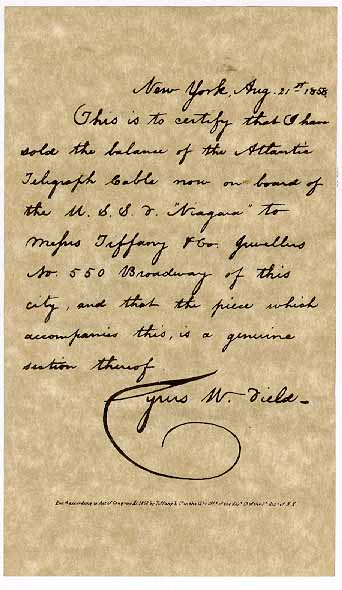 New York, Aug. 21st 1858.
This is to certify that I have
sold the balance of the Atlantic
Telegraph Cable now on board of
the U. S. S. F. "Niagara" to
Messrs Tiffany & Co. Jewellers
No. 550 Broadway of this
city, and that the piece which
accompanies this, is a genuine
section thereof
Cyrus W. Field
Ent. according to Act of Congress 1858 by Tiffany & Co in the of the of the of N.Y.